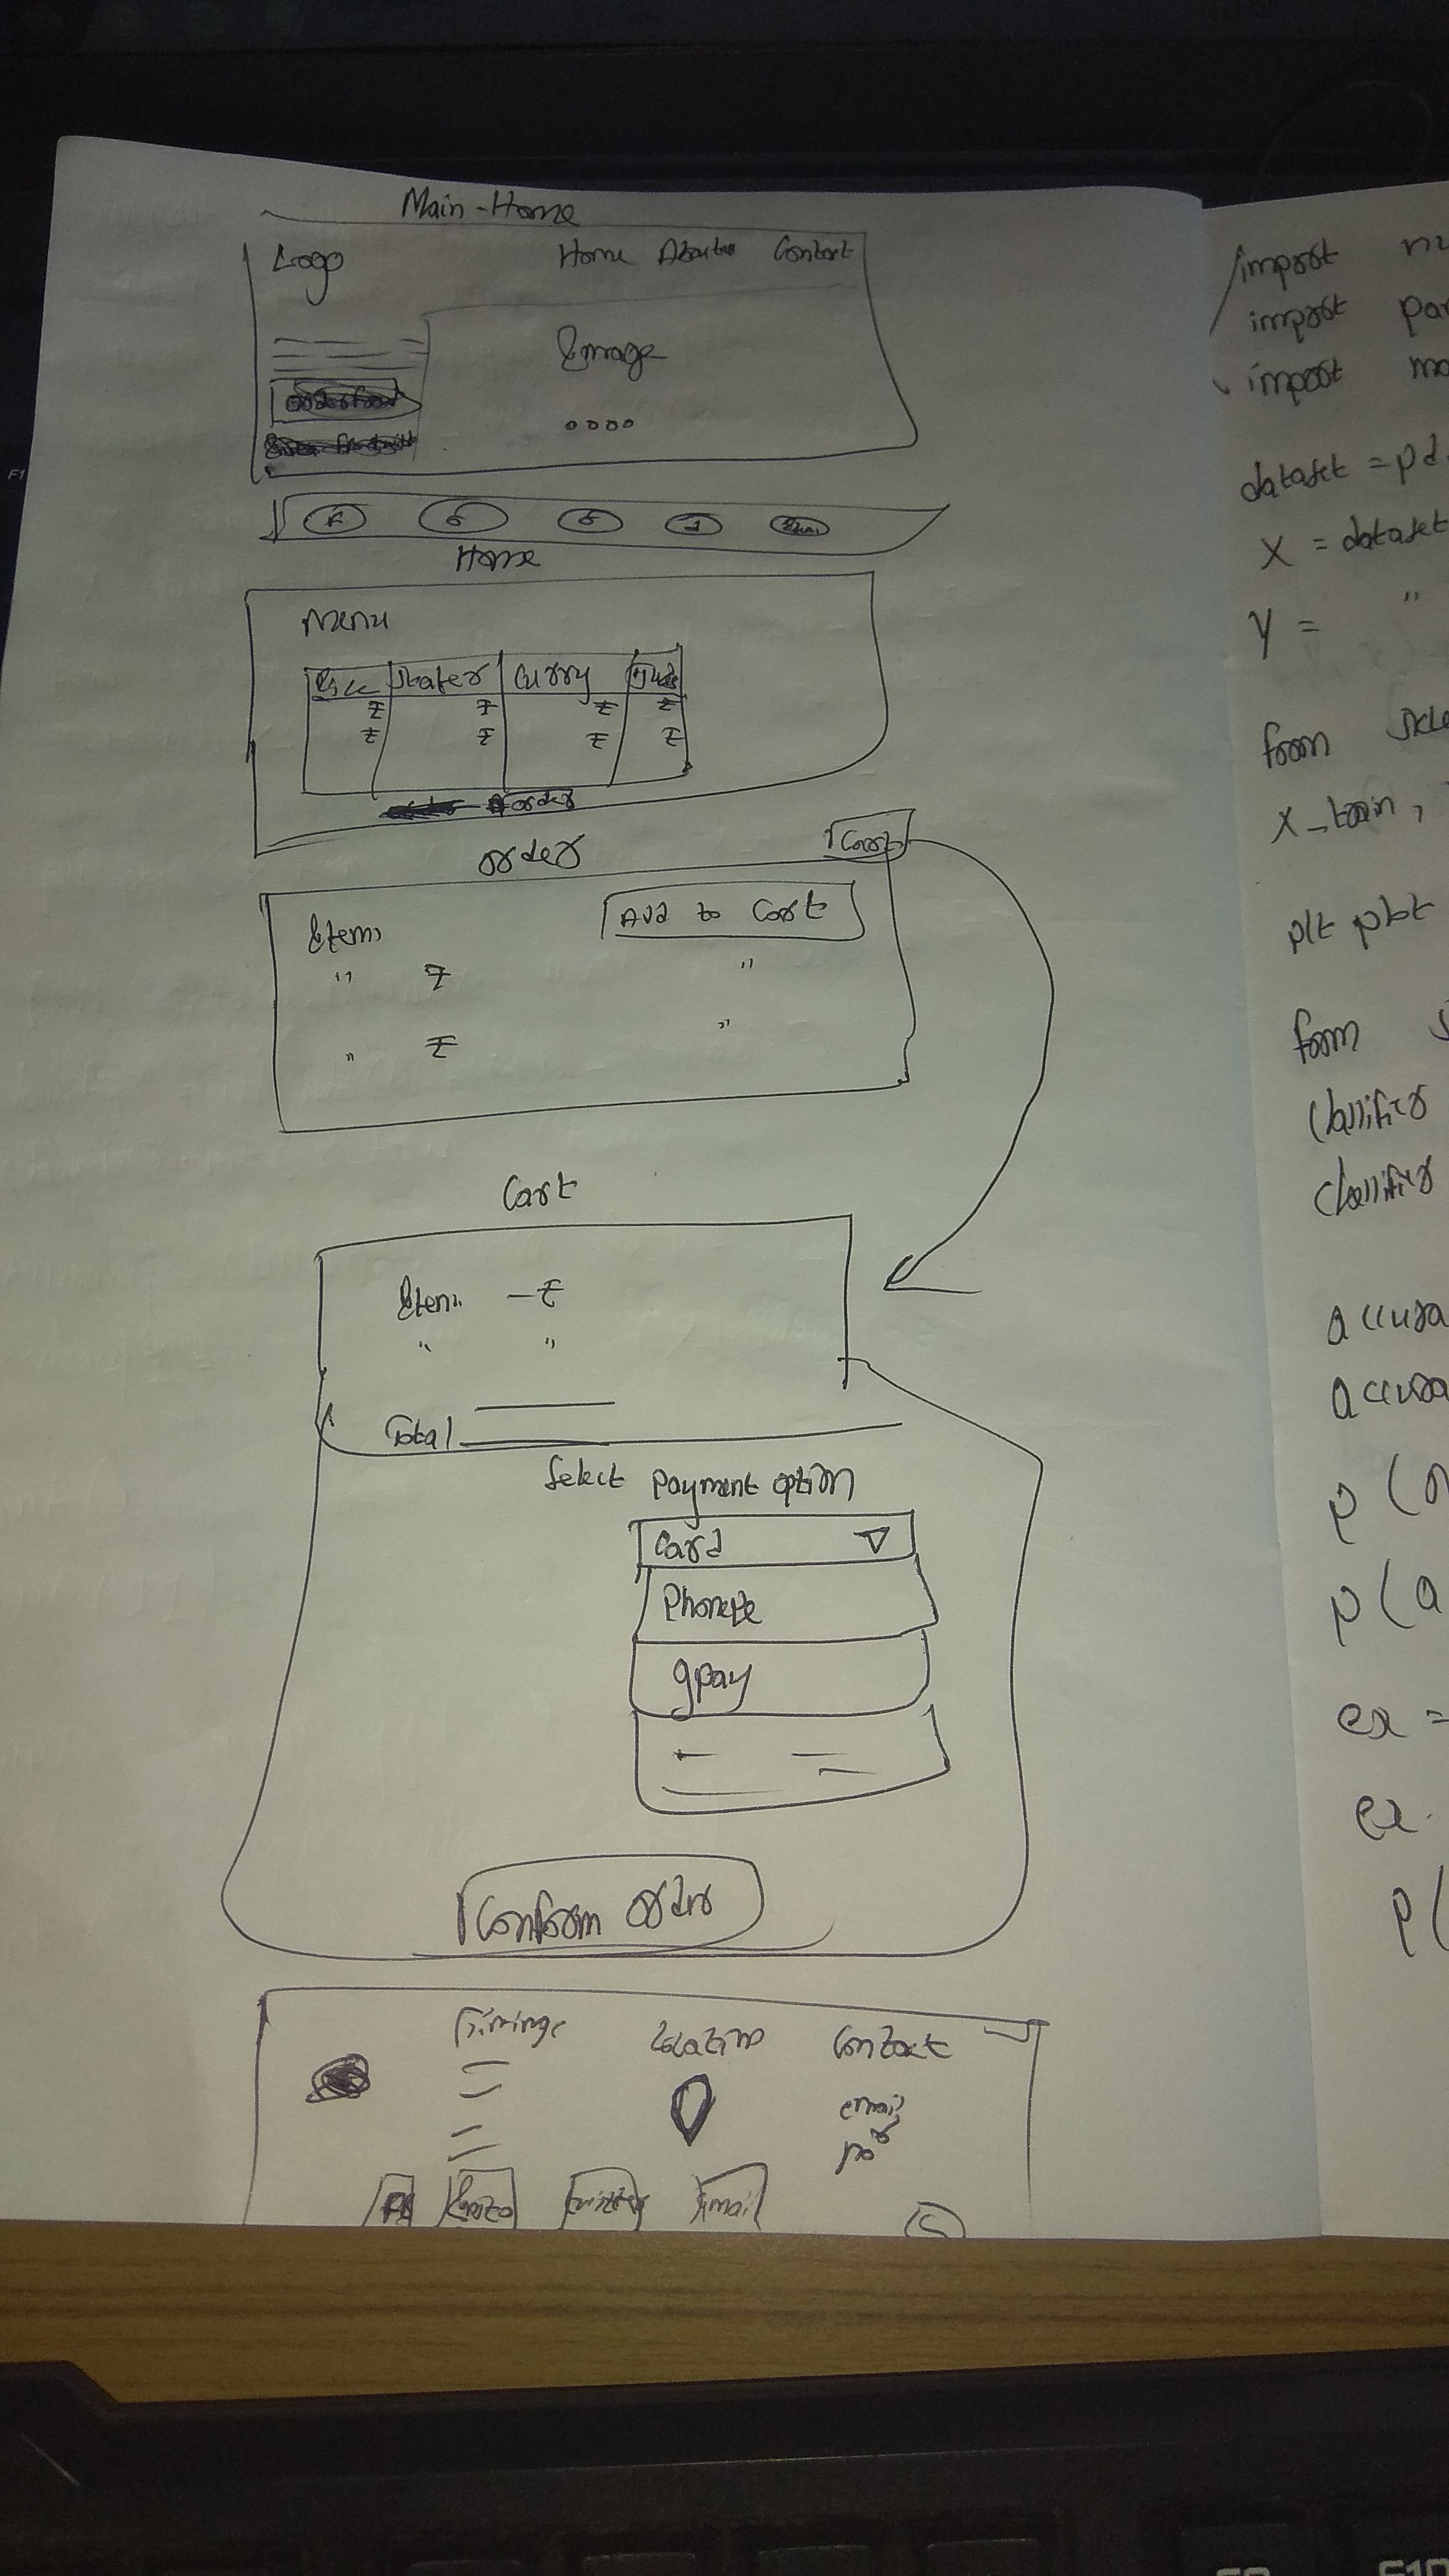 Main-Home
Logo Home About us Contact
Image
Home
Menu
Rice Stater Curry
₹ ₹ ₹ ₹
₹ ₹ ₹ ₹
order
order
Cart
Items Add to Cart
" ₹ "
" ₹ "
Cart
Items - ₹
" "
Total
Select Payment option
Card
PhonePe
gpay
Conform order
Timings Location Contact
email
FB Insta twitter Email
import
import
import
dataset = pd.
X = dataset
y = "
from
x_train,
plt plot
from
classifier
classifier
p(
p(a
ex =
ex.
p(
F1